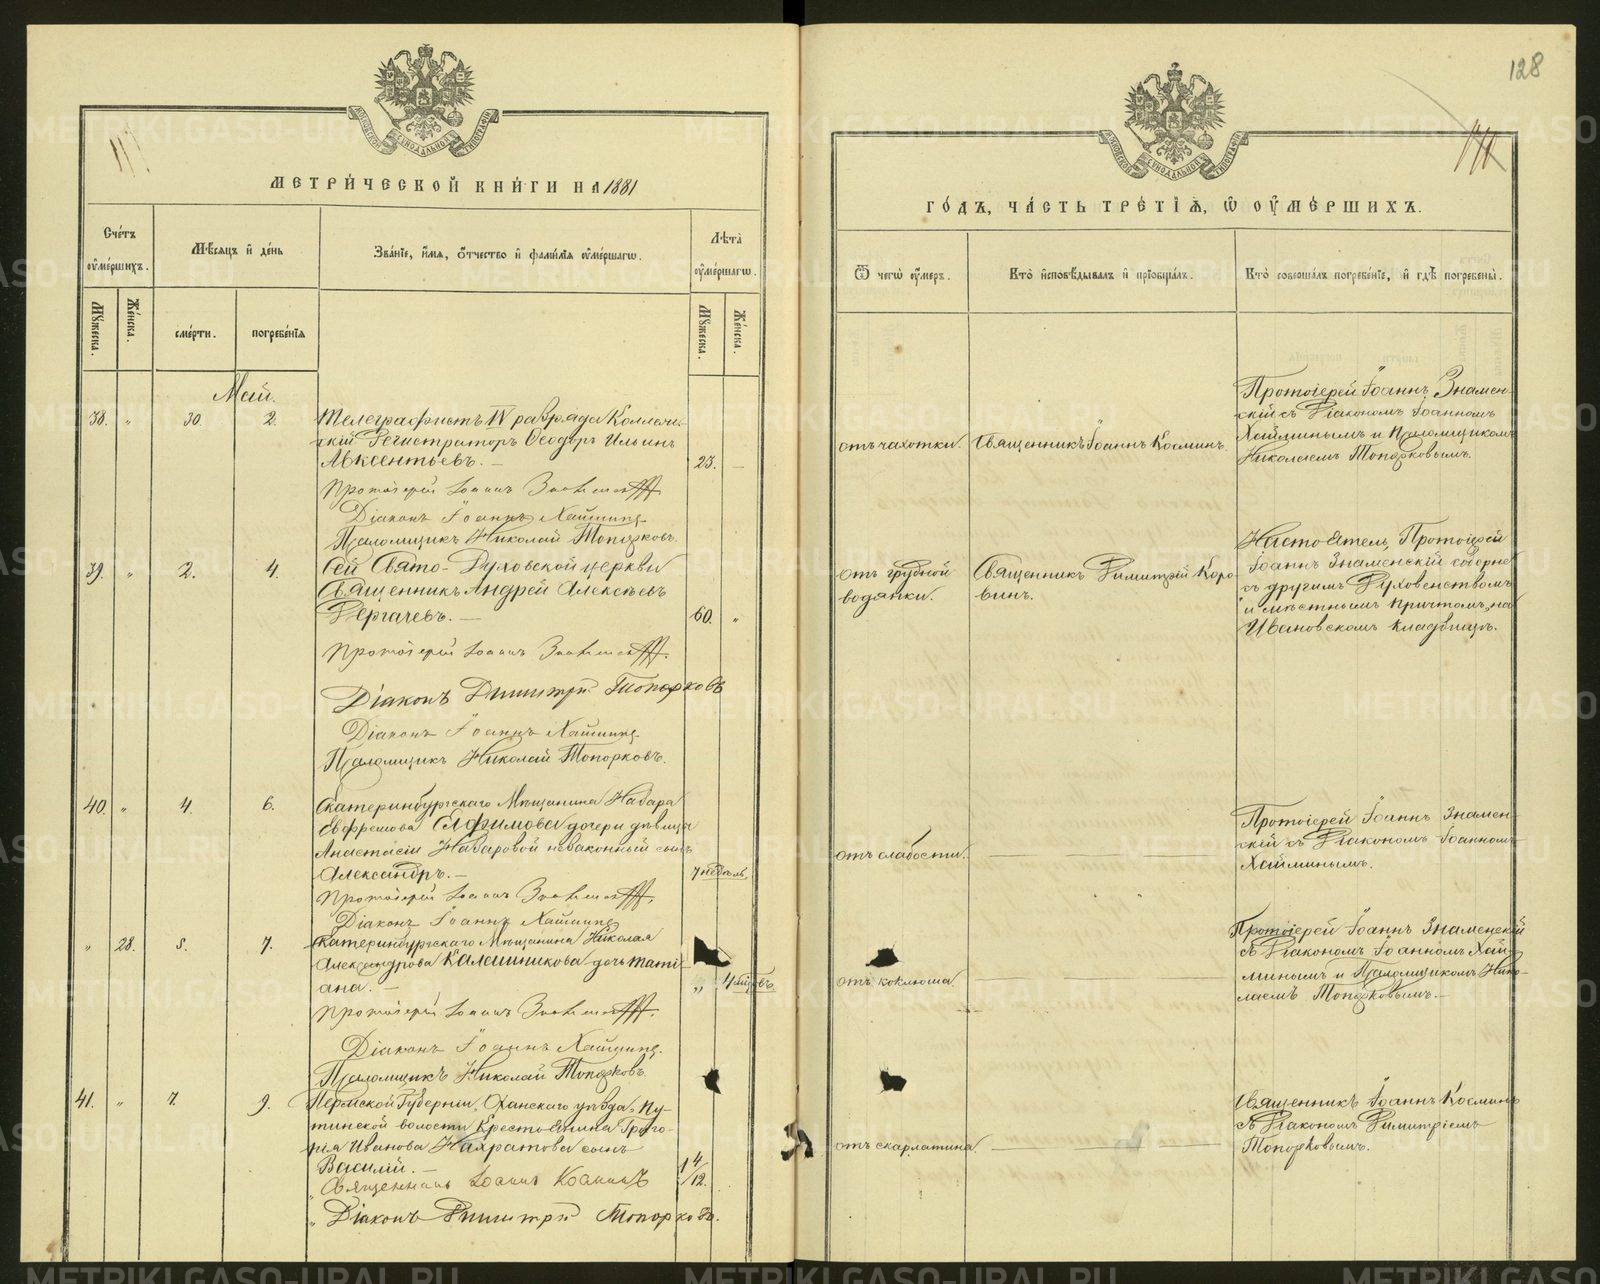 128
МЕТРИЧЕСКОЙ КНИГИ НА 1881
ГОДЪ, ЧАСТЬ ТРЕТІЯ, Ѡ ОУМЕРШИХЪ.
Счетъ оумершихъ.
Мѣсяцъ и день
Званіе, имя, отчество и фамилія оумершагѡ.
Лѣта оумершагѡ.
Мужеска.
Женска.
смерти.
погребенія
Мужеска.
Женска.
Ѿ чегѡ оумеръ.
Кто исповѣдывалъ и пріобщалъ.
Кто совершалъ погребеніе, и гдѣ погребены.
Май.
38. „ 30. 2.
Телеграфистъ IV разряда Коллеж-
скій Регистраторъ Ѳеодоръ Ильинъ
Авксентьевъ. —
23. —
отъ чахотки.
Священникъ Іоаннъ Косминъ.
Протоіерей Іоаннъ Знамен-
скій съ Діакономъ Іоанномъ
Хайминымъ и Псаломщикомъ
Николаемъ Топорковымъ.
Протоіерей Іоаннъ
Діаконъ Іоаннъ Хайминъ
Псаломщикъ Николай Топорковъ.
39. „ 2. 4.
Сей Свято-Духовской церкви
Священникъ Андрей Алексѣевъ
Дергачевъ. —
60. „
отъ грудной
водянки.
Священникъ Димитрій Коро-
винъ.
Настоятель, Протоіерей
Іоаннъ Знаменскій соборне
съ другимъ Духовенствомъ
и мѣстнымъ причтомъ, на
Ивановскомъ кладбищѣ.
Протоіерей Іоаннъ
Діаконъ Димитрій Топорковъ
Діаконъ Іоаннъ Хайминъ
Псаломщикъ Николай Топорковъ.
40. „ 4. 6.
Екатеринбургскаго Мѣщанина Назара
Ефимова дочери дѣвицы
Анастасіи Назаровой незаконный сынъ
Александръ. —
7 недѣль.
отъ слабости.
Протоіерей Іоаннъ Знамен-
скій съ Діакономъ Іоанномъ
Хайминымъ.
Протоіерей Іоаннъ
Діаконъ Іоаннъ Хайминъ
„ 28. 5. 7.
Екатеринбургскаго Мѣщанина Николая
Александрова Калашникова дочь Таті-
ана. —
„ 4 мѣс.
отъ коклюша.
Протоіерей Іоаннъ Знаменскій
съ Діакономъ Іоанномъ Хай-
минымъ и Псаломщикомъ Нико-
лаемъ Топорковымъ. —
Протоіерей Іоаннъ
Діаконъ Іоаннъ Хайминъ.
Псаломщикъ Николай Топорковъ
41. „ 7. 9.
Пермской Губерніи, Оханскаго уѣзда, Пу-
тинской волости Крестьянина Григо-
рія Иванова сынъ
Василій. —
1 4/12.
отъ скарлатина.
Священникъ Іоаннъ Косминъ
съ Діакономъ Димитріемъ
Топорковымъ.
Священникъ Іоаннъ Косминъ
„ Діаконъ Димитрій Топорковъ.
METRIKI.GASO-URAL.RU